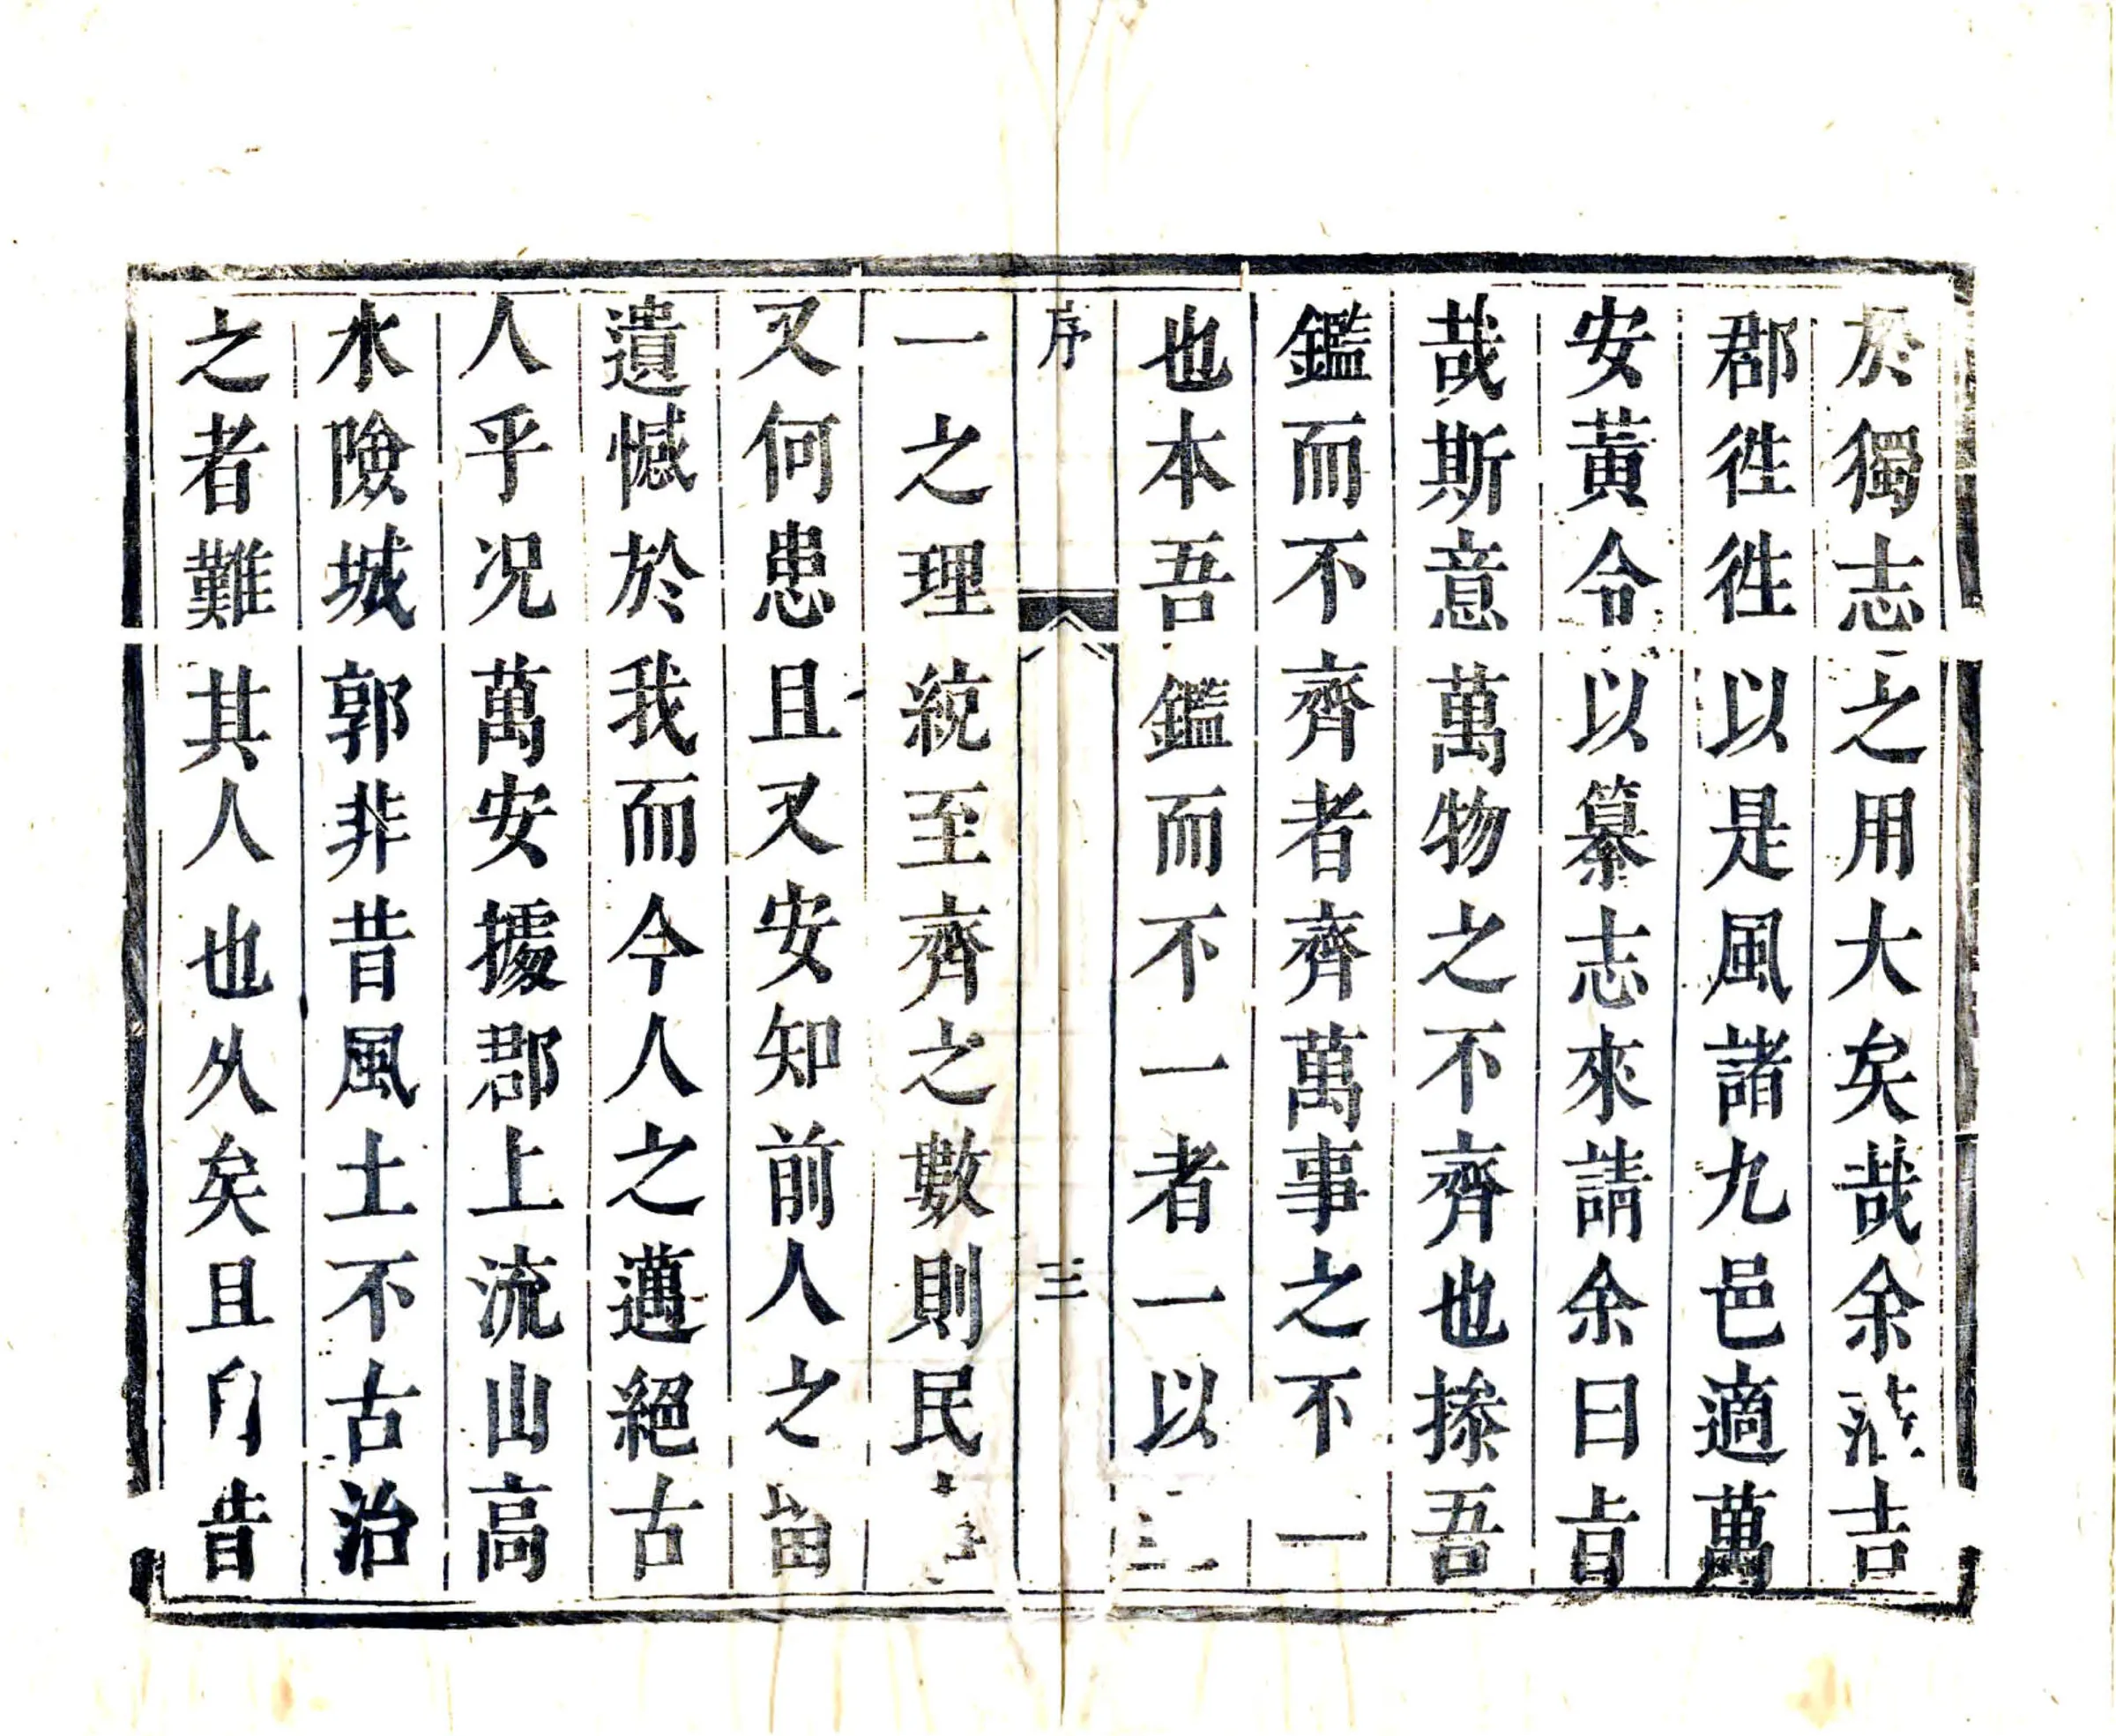 於獨志之用大矣哉余蒞吉
郡徃徃以是風諸九邑適萬
安黃令以纂志來請余曰㫖
哉斯意萬物之不齊也操吾
鑑而不齊者齊萬事之不一
也本吾鑑而不一者一以
序 三
一之理統至齊之數則民
又何患且又安知前人之畱
遺憾於我而今人之邁絕古
人乎况萬安據郡上流山高
水險城郭非昔風土不古治
之者難其人也乆矣且自昔